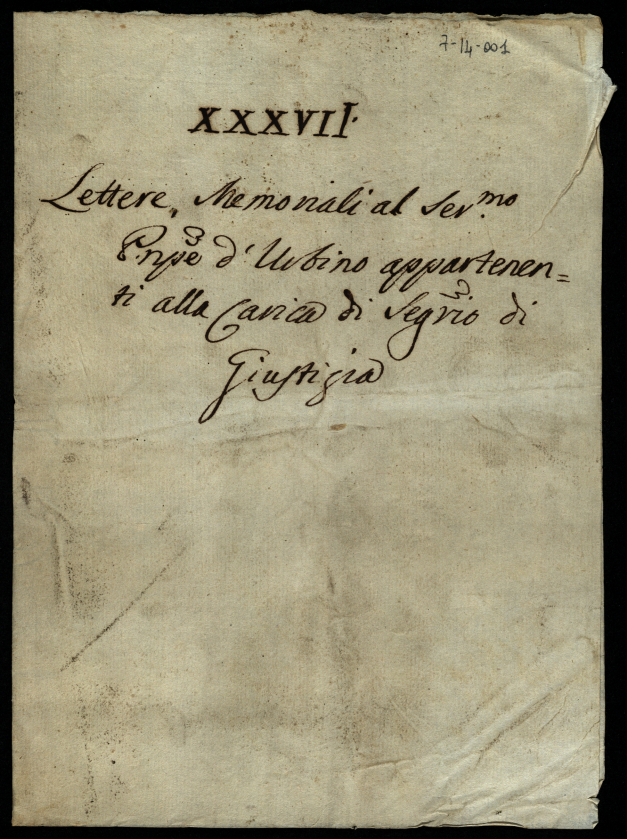 7-14-001
XXXVII.
Lettere, Memoriali al Ser.mo
Pnpe d'Urbino appartenen=
ti alla Carica di Segrio di
Giustizia